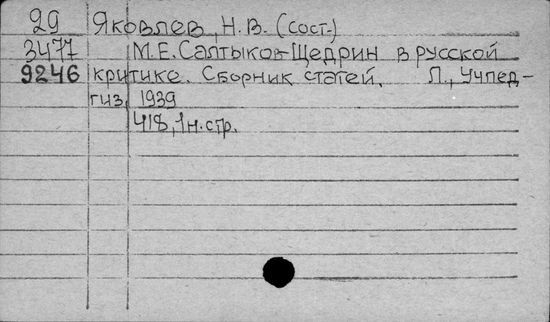 29 Яковлев, Н.В. (сост.)
3477 М.Е.Салтыков-Щедрин в русской
9246 критике. Сборник статей. Л., Учпед-
гиз, 1939
418, 1 н.стр.